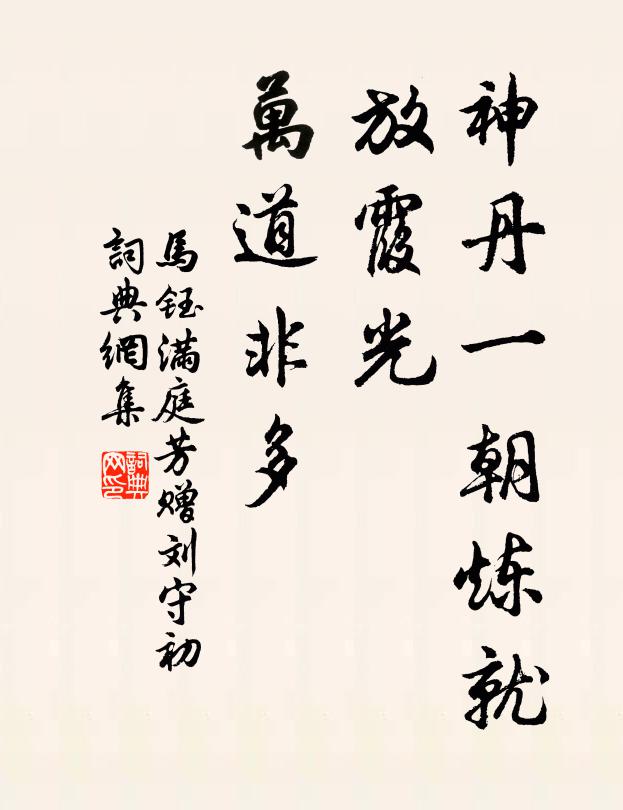 神丹一朝炼就
放霞光
萬道非多
馬鈺满庭芳赠刘守初
詞典網集
詞典
网印